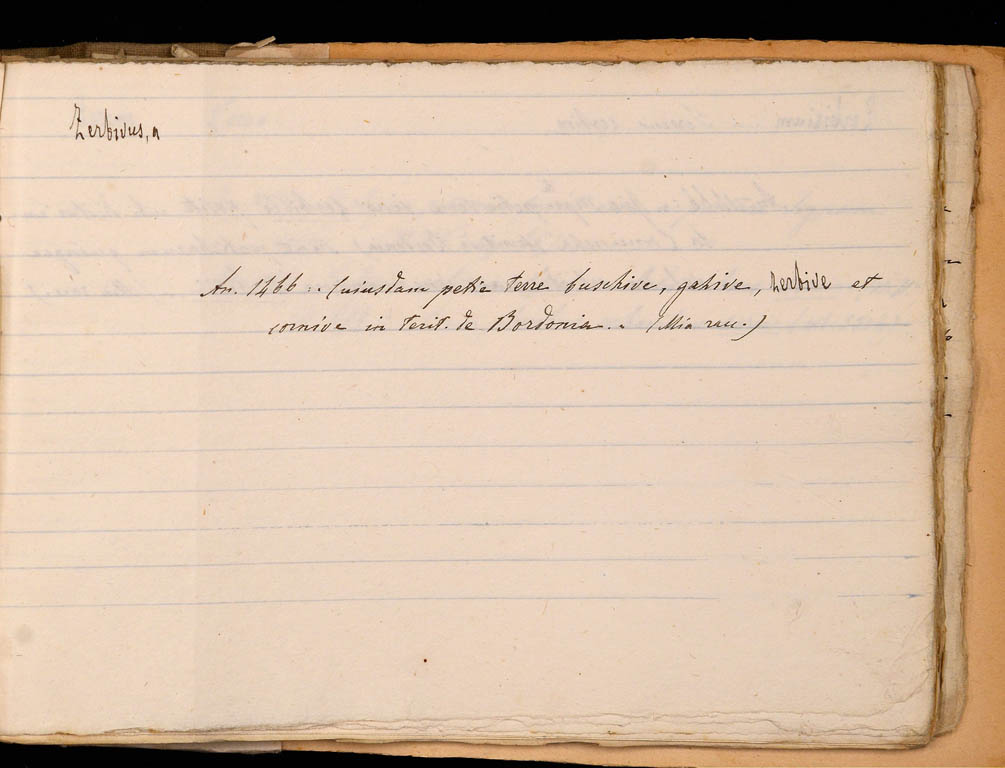 Zerbivus, a
An. 1466 :. Cuiusdam petie terre buschive, gahive, zerbive et
cornive in terit. de Bordonia. . (Mia racc.)